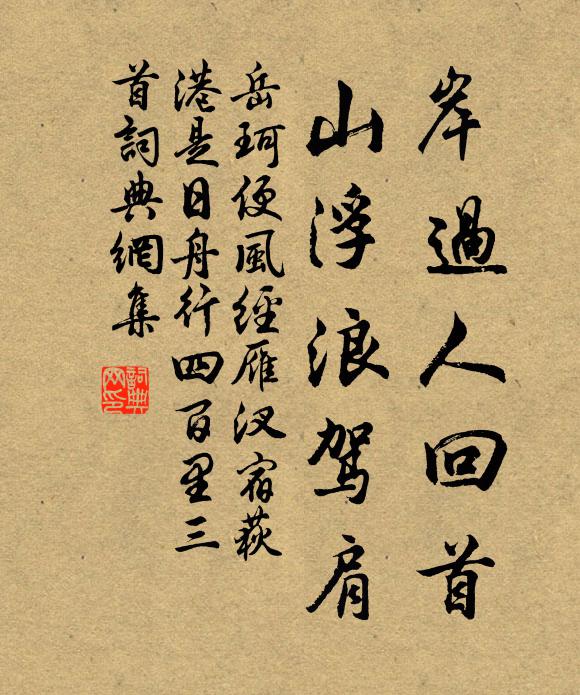 岸過人回首
山浮浪駕肩
岳珂便風經雁汊宿荻
港是日舟行四百里三
首詞典網集
詞典
网印